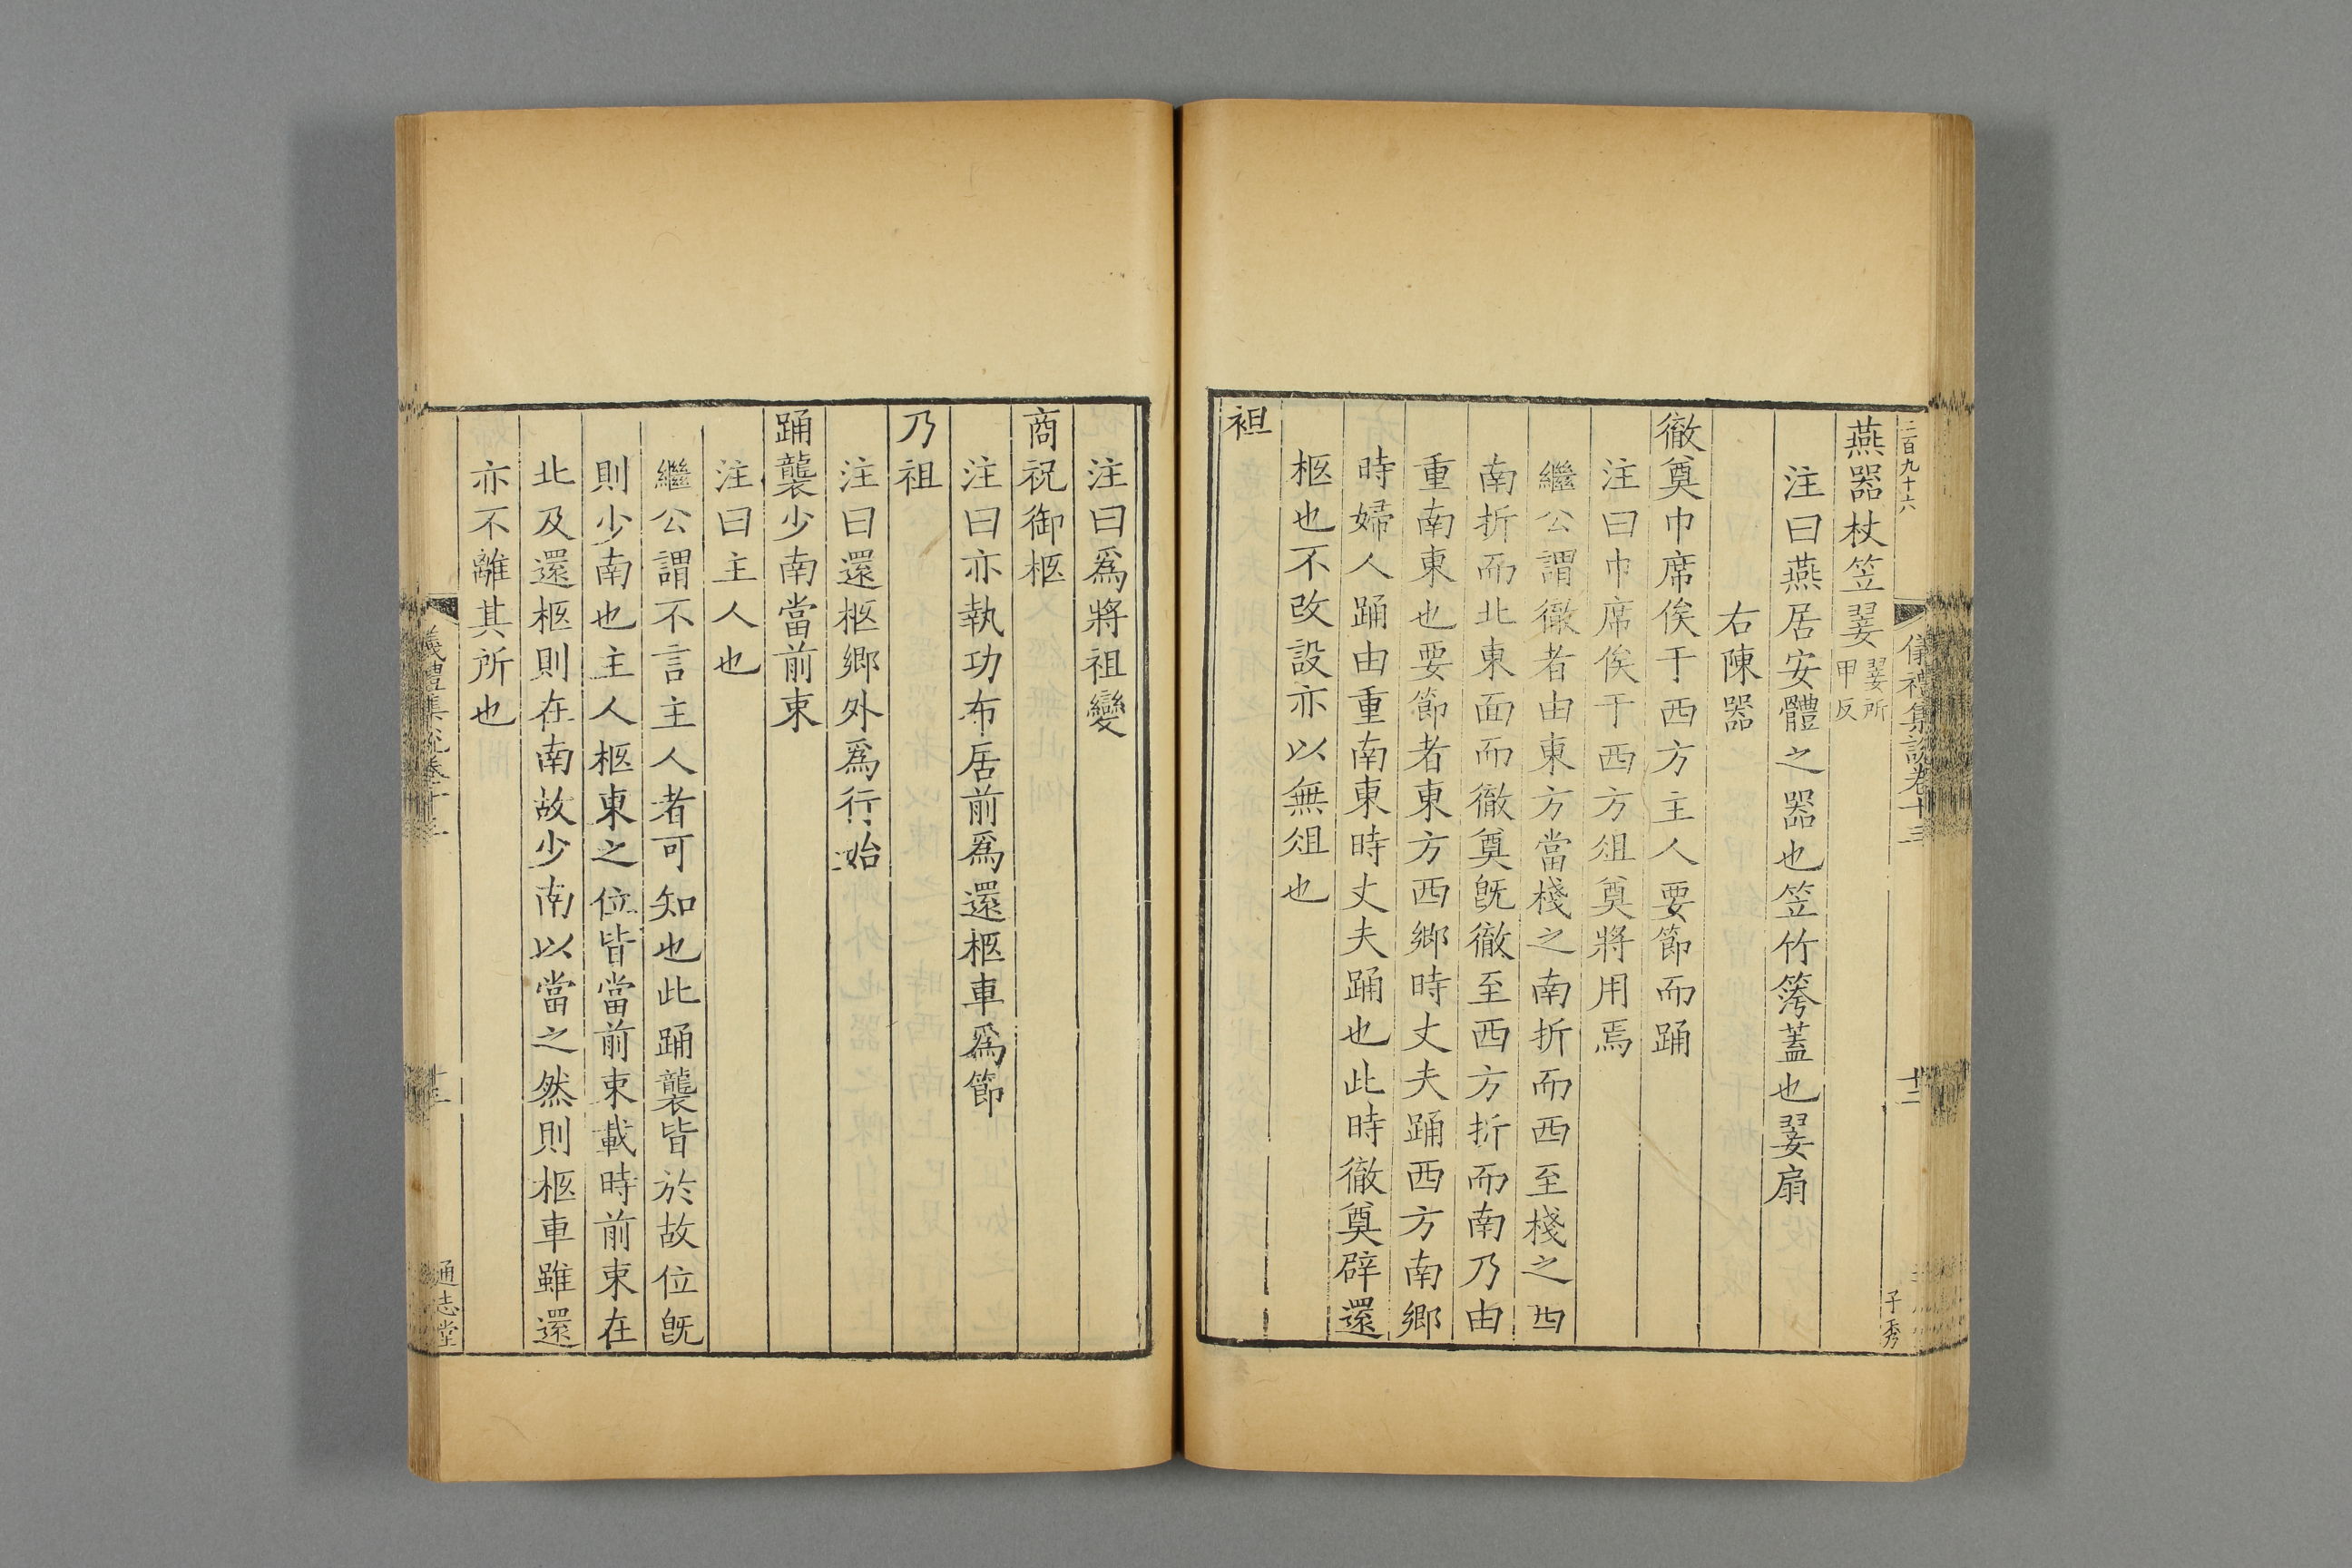 二百九十六
儀禮集説卷十三
十二
子秀
燕器杖笠翣翣所甲反
注曰燕居安體之器也笠竹䈬蓋也翣扇
右陳器
徹奠巾席俟于西方主人要節而踊
注曰巾席俟于西方俎奠將用焉
繼公謂徹者由東方當棧之南折而西至棧之西
南折而北東面而徹奠旣徹至西方折而南乃由
重南東也要節者東方西鄉時丈夫踊西方南鄉
時婦人踊由重南東時丈夫踊也此時徹奠辟還
柩也不改設亦以無俎也
袒
注曰爲將祖變
商祝御柩
注曰亦執功布居前爲還柩車爲節
乃祖
注曰還柩鄉外爲行始
踊襲少南當前束
注曰主人也
繼公謂不言主人者可知也此踊襲皆於故位旣
則少南也主人柩東之位皆當前束載時前束在
北及還柩則在南故少南以當之然則柩車雖還
亦不離其所也
儀禮集説卷十三
通志堂